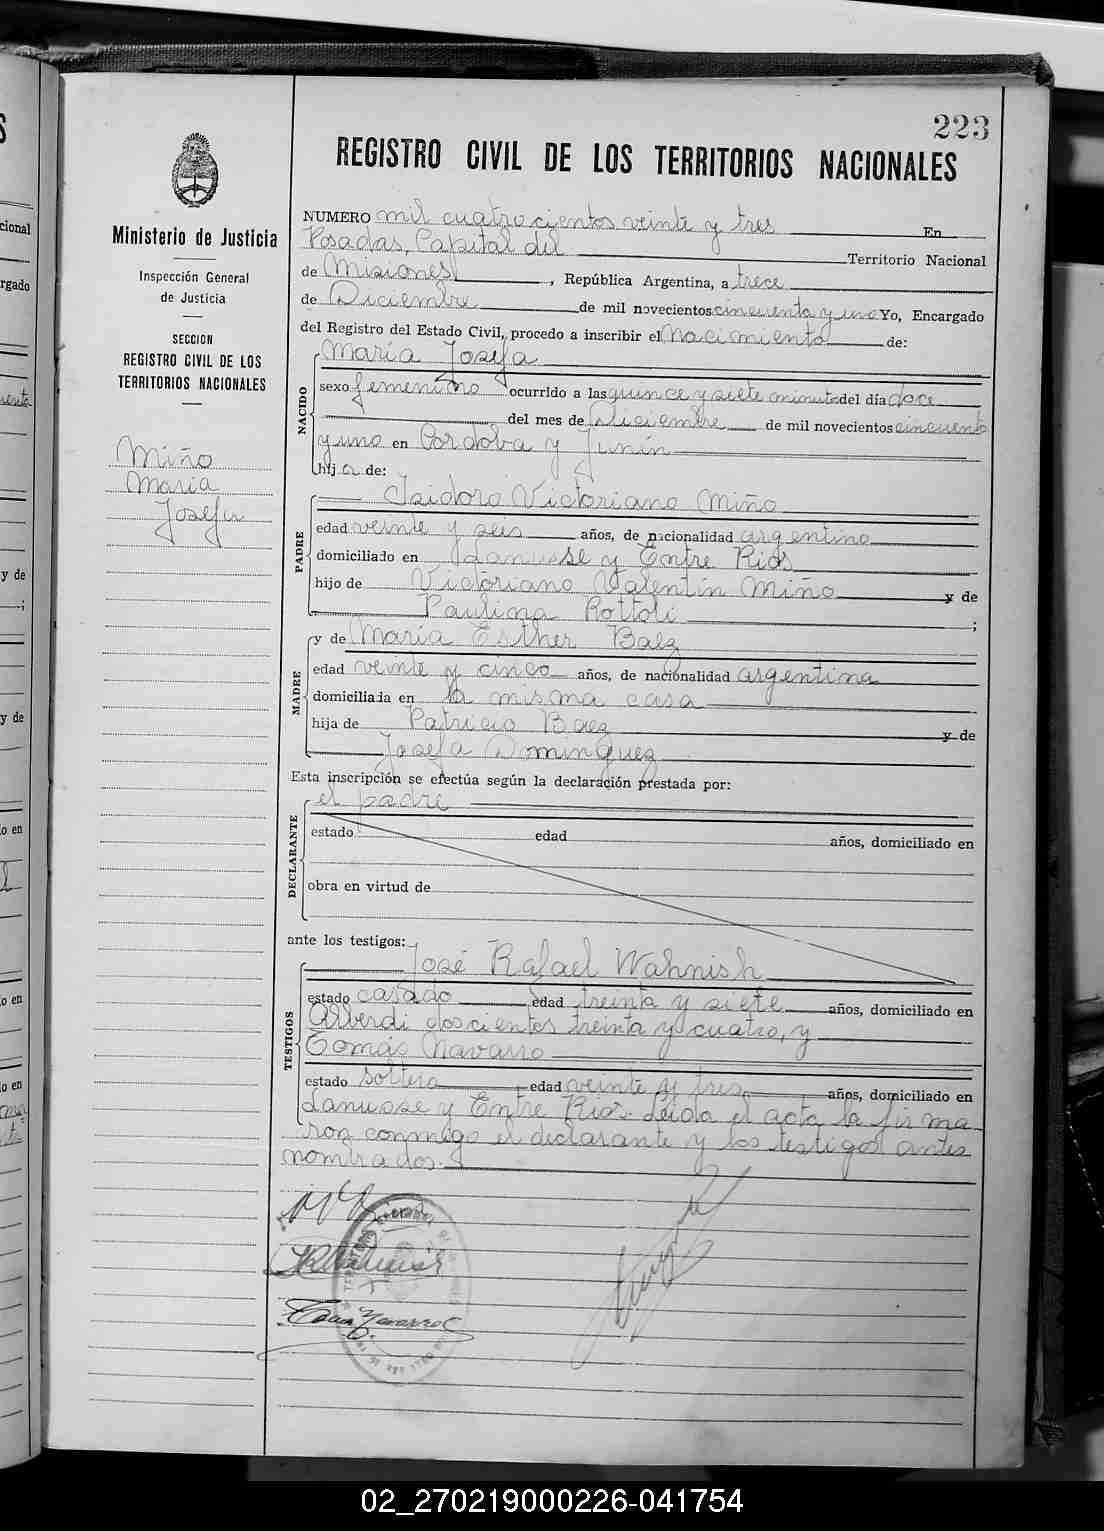 223
REGISTRO CIVIL DE LOS TERRITORIOS NACIONALES
Ministerio de Justicia
Inspección General
de Justicia
SECCION
REGISTRO CIVIL DE LOS
TERRITORIOS NACIONALES
Miño
Maria
Josefa
NUMERO mil cuatrocientos veinte y tres En
Posadas, Capital del Territorio Nacional
de Misiones, República Argentina, a trece
de Diciembre de mil novecientos cincuenta y uno Yo, Encargado
del Registro del Estado Civil, procedo a inscribir el Nacimiento de:
NACIDO
María Josefa
sexo femenino ocurrido a las quince y siete minutos del día doce
del mes de Diciembre de mil novecientos cincuenta
y uno en Cordoba y Junín
hija de:
PADRE
Isidoro Victoriano Miño
edad veinte y seis años, de nacionalidad argentino
domiciliado en Lanusse y Entre Rios
hijo de Victoriano Valentín Miño y de
Paulina Rottoli ;
MADRE
y de María Esther Baez
edad veinte y cinco años, de nacionalidad argentina
domiciliada en la misma casa
hija de Patricio Baez y de
Josefa Dominguez
Esta inscripción se efectúa según la declaración prestada por:
DECLARANTE
el padre
estado edad años, domiciliado en
obra en virtud de
ante los testigos:
TESTIGOS
José Rafael Wahnish
estado casado edad treinta y siete años, domiciliado en
Alberdi doscientos treinta y cuatro, y
Tomás Navarro
estado soltero edad veinte y tres años, domiciliado en
Lanusse y Entre Rios. Leida el acta la firma-
ron conmigo el declarante y los testigos antes
nombrados.
02_270219000226-041754